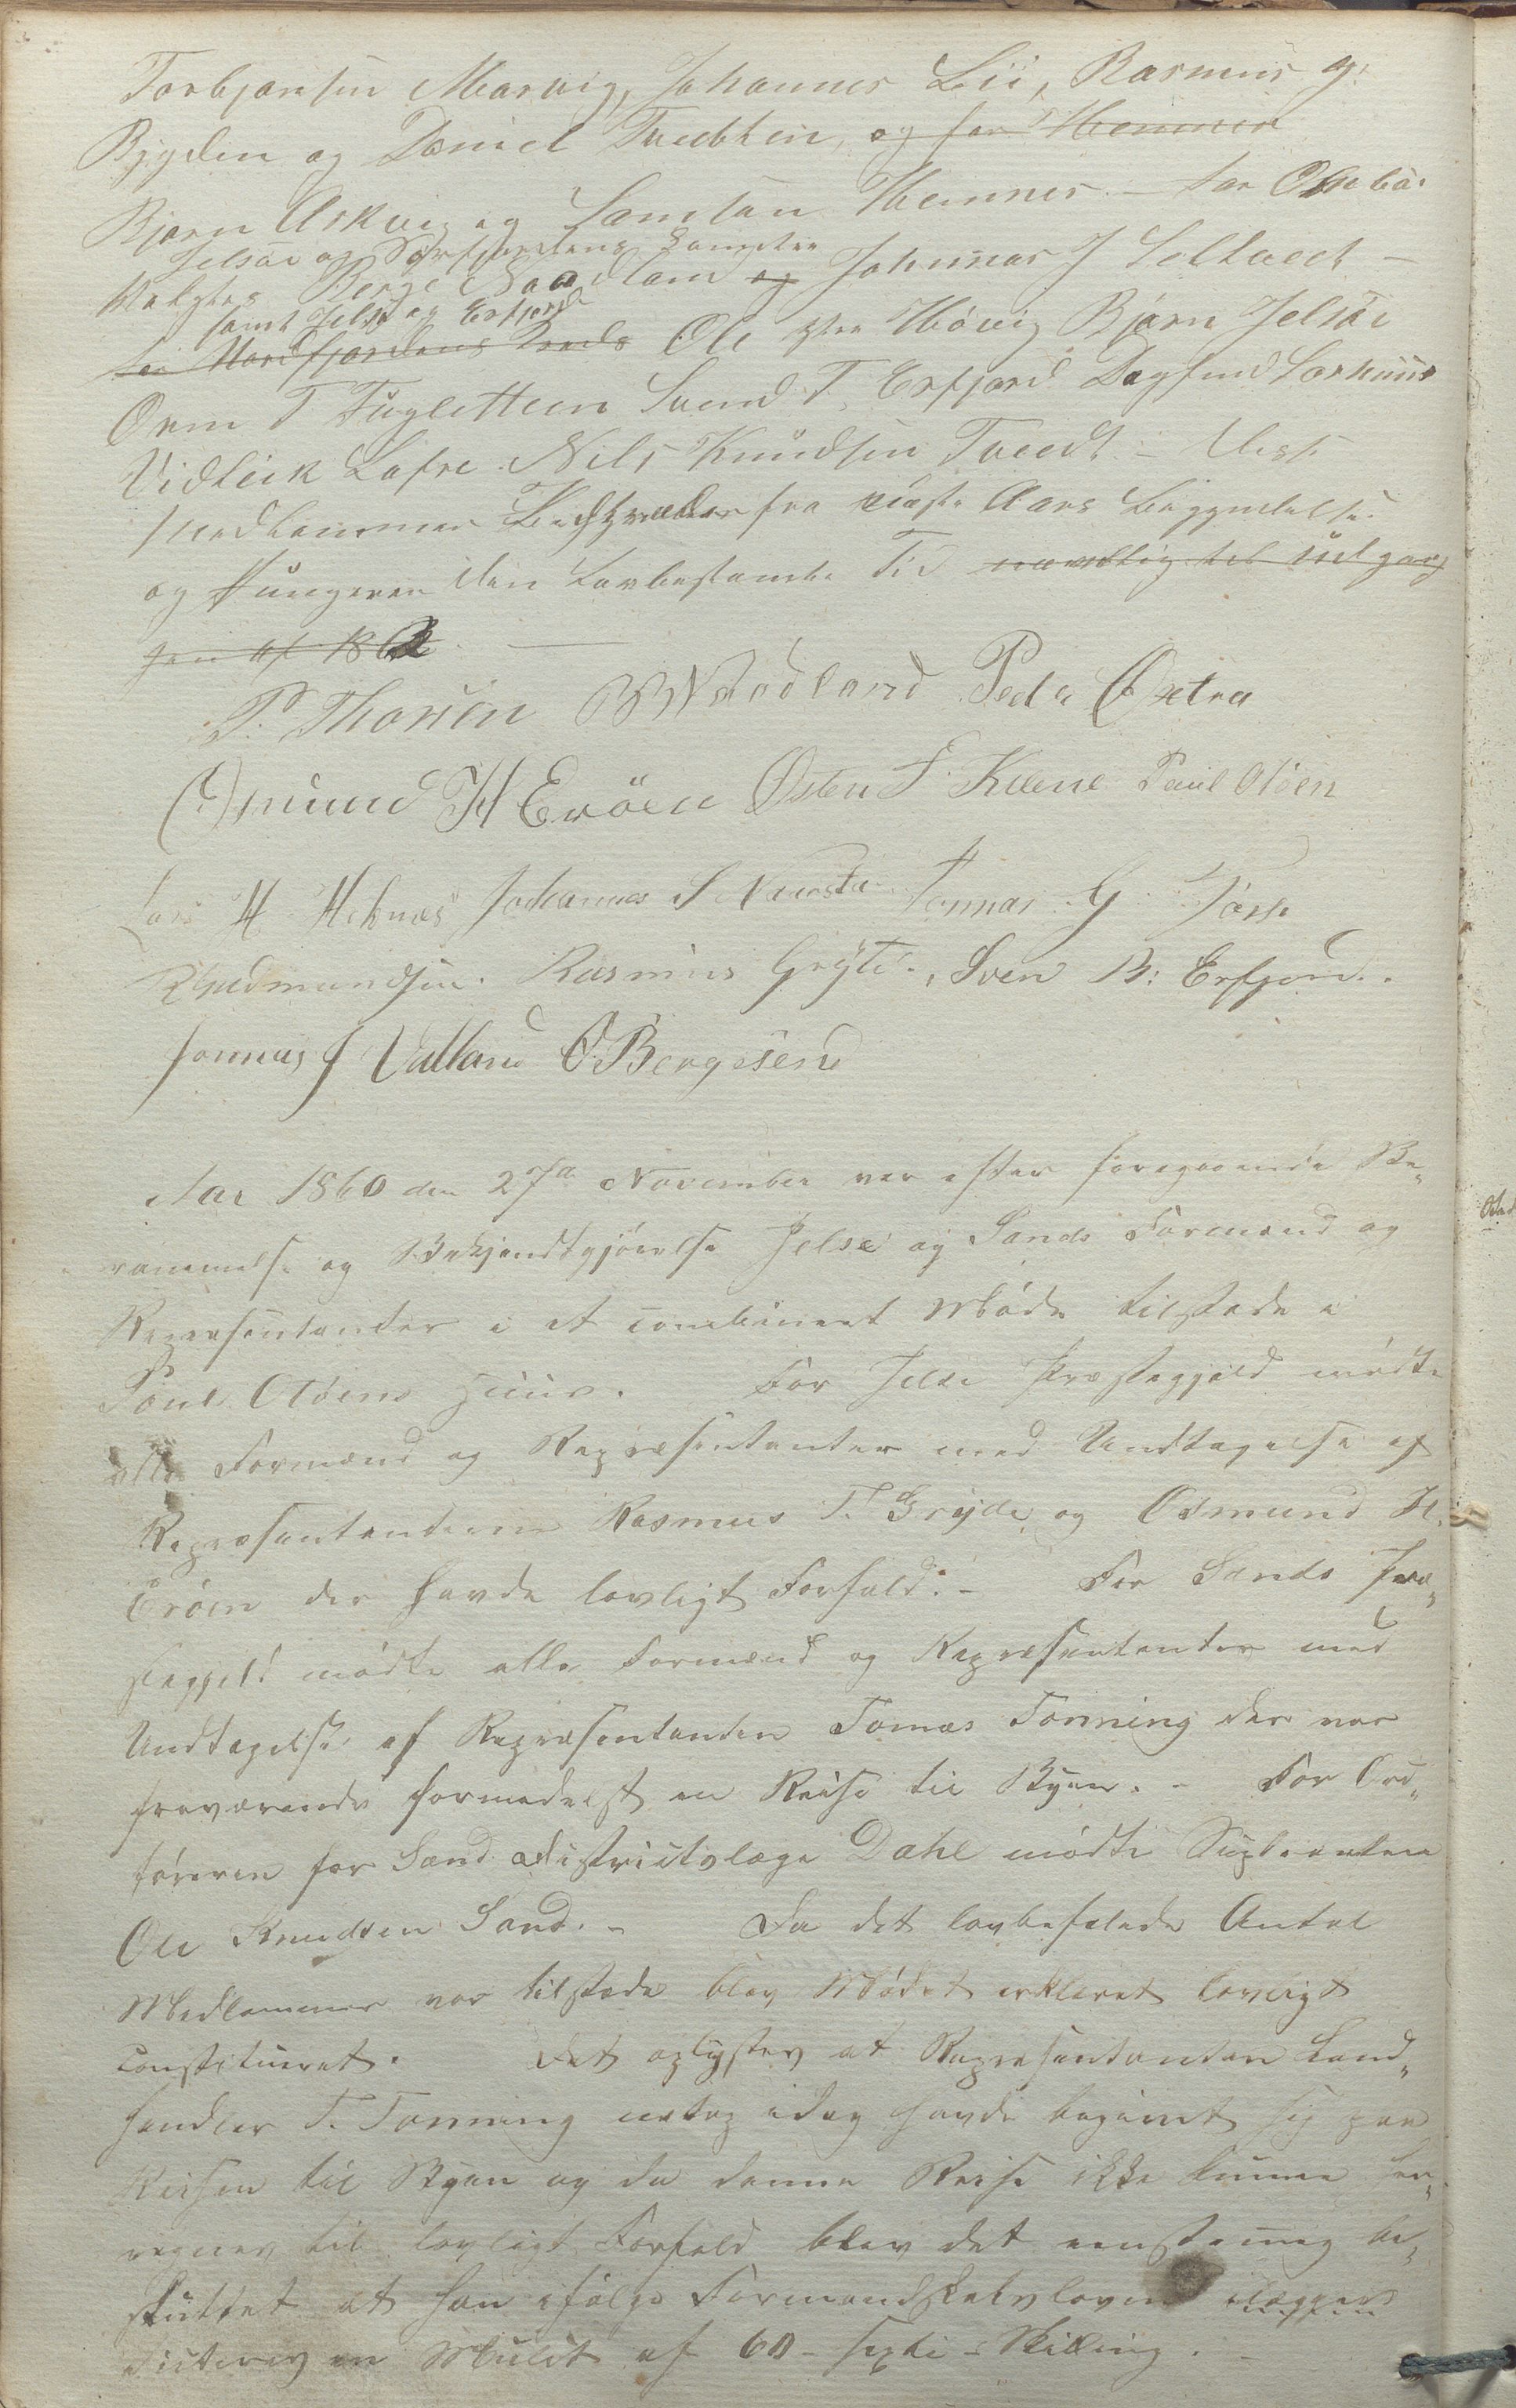 Torbjørnsen Marvig, Johannes Lii, Rasmus G:
Bjyden og Daniel Tvedtten, og for Hennes
Bjørn Askvig og Samson Hennes. – For
Jelsøe og Sørfjordens
Valgtes Berge Naadland og Johannes J Selland –
samt Jelse og Erfjord
for Nordfjordens Kreds Ole Høivig Bjørn Jelsøe
Orm T Fuglesteen Svend T. Erfjord Dagfind Sarhuus
Vidleik Lafre. Nils Knudsen Tvedt. –
Medlemmer fra næste Aars Begyndelse
og fungerer den Lovbestemte Tid nemlig til Udgang
gen af 1862. –
P. Thorsen B Naadland Peder Øxtra
Osmund H Erøen Østen F. Kvene Paul Oløen
Lars H. Hebnes Johannes S Nausta Tommas G. Foss
R Gudmundsen. Rasmus Gryte., Sven B: Erfjord.
Jonnas J Valland O. Bergesen
Aar 1860 den 27de November var efter foregaaende Be„
rammelse og Bekjendtgjørelse Jelse og Sands Formænd og
Repræsentanter i et combineret Møde tilstede i
Poul Oløens Huus. For Jelse Præstegjeld mødte
alle Formænd og Repræsentanter med Undtagelse af
Repræsentanterne Rasmus T. Gryde og Osmund H.
Erøen der havde lovligt Forfald. – For Sands Præ„
stegjeld mødte alle Formænd og Repræsentanter med
Undtagelse af Repræsentanten Tomas Tonning der var
fraværende formedelst en Reise til Byen. – For Ord„
føreren for Sand Districtslæge Dahl mødte Suppleanten
Ole Knudsen Sand. – Da det lovbefalede Antal
Medlemmer var tilstede blev Mødet erklæret lovligt
constitueret. Det oplystes at Repræsentanten Land„
handler T. Tonning netop idag havde begivet sig paa
Reisen til Byen og da denne Reise ikke kunne hen„
regnes til lovligt Forfald blev det eenstemmig be„
sluttet at han ifølge Formandskabsloven ilægges
en Mulct af 60 – sexti – Skilling. –